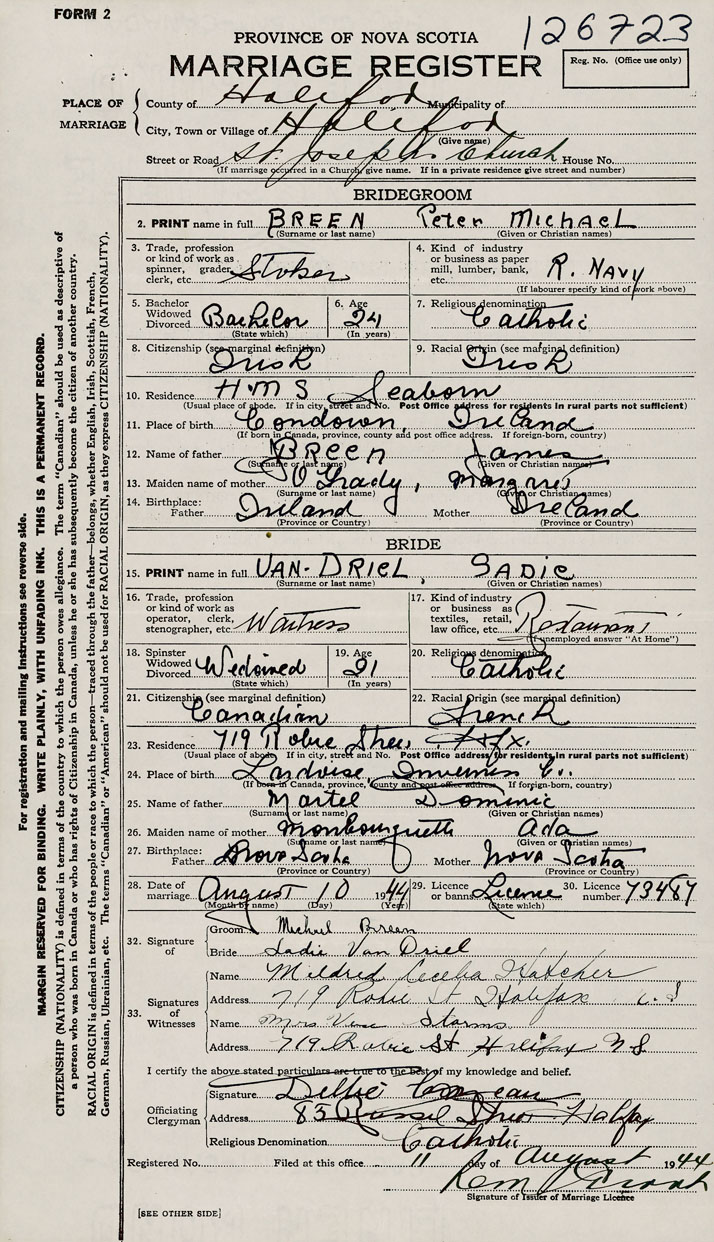 FORM 2
126723
PROVINCE OF NOVA SCOTIA
MARRIAGE REGISTER
Reg. No. (Office use only)
PLACE OF MARRIAGE
County of Halifax Municipality of
City, Town or Village of Halifax
(Give name)
Street or Road St. Joseph's Church House No.
(If marriage occurred in a Church, give name. If in a private residence give street and number)
BRIDEGROOM
2. PRINT name in full BREEN Peter Michael
(Surname or last name) (Given or Christian names)
3. Trade, profession or kind of work as spinner, grader, clerk, etc. Stoker
4. Kind of industry or business as paper mill, lumber, bank, etc. R. Navy
(If labourer specify kind of work above)
5. Bachelor Widowed Divorced Bachelor (State which)
6. Age 24 (In years)
7. Religious denomination Catholic
8. Citizenship (see marginal definition) Irish
9. Racial Origin (see marginal definition) Irish
10. Residence HMS Seaborn
(Usual place of abode. If in city, street and No. Post Office address for residents in rural parts not sufficient)
11. Place of birth Ireland
(If born in Canada, province, county and post office address. If foreign-born, country)
12. Name of father BREEN James
(Surname or last name) (Given or Christian names)
13. Maiden name of mother O'Grady,
(Surname or last name) (Given or Christian names)
14. Birthplace: Father Ireland Mother Ireland
(Province or Country) (Province or Country)
BRIDE
15. PRINT name in full VAN-DRIEL, SADIE
(Surname or last name) (Given or Christian names)
16. Trade, profession or kind of work as operator, clerk, stenographer, etc. Waitress
17. Kind of industry or business as textiles, retail, law office, etc. Restaurant
(If unemployed answer "At Home")
18. Spinster Widowed Divorced Widowed (State which)
19. Age 21 (In years)
20. Religious denomination Catholic
21. Citizenship (see marginal definition) Canadian
22. Racial Origin (see marginal definition) French
23. Residence 719 Robie Street Hfx.
(Usual place of abode. If in city, street and No. Post Office address for residents in rural parts not sufficient)
24. Place of birth Inverness Co.
(If born in Canada, province, county and post office address. If foreign-born, country)
25. Name of father Martel Dominic
(Surname or last name) (Given or Christian names)
26. Maiden name of mother Ada
(Surname or last name) (Given or Christian names)
27. Birthplace: Father Nova Scotia Mother Nova Scotia
(Province or Country) (Province or Country)
28. Date of marriage August 10 1944
(Month by name) (Day) (Year)
29. Licence or banns Licence (State which)
30. Licence number 73487
32. Signature of
Groom Michael Breen
Bride Sadie Van Driel
33. Signatures of Witnesses
Name Mildred Cecelia Hatcher
Address 719 Robie St Halifax
Name Mrs Storms
Address 719 Robie St Halifax N.S.
I certify the above stated particulars are true to the best of my knowledge and belief.
Officiating Clergyman
Signature
Address Russel Street Halifax
Religious Denomination Catholic
Registered No. Filed at this office 11 day of August 1944
Signature of Issuer of Marriage Licence
[SEE OTHER SIDE]
For registration and mailing instructions see reverse side.
MARGIN RESERVED FOR BINDING. WRITE PLAINLY, WITH UNFADING INK. THIS IS A PERMANENT RECORD.
CITIZENSHIP (NATIONALITY) is defined in terms of the country to which the person owes allegiance. The term "Canadian" should be used as descriptive of
a person who was born in Canada or who has rights of Citizenship in Canada, unless he or she has subsequently become the citizen of another country.
RACIAL ORIGIN is defined in terms of the people or race to which the person—traced through the father—belongs, whether English, Irish, Scottish, French,
German, Russian, Ukrainian, etc. The terms "Canadian" or "American" should not be used for RACIAL ORIGIN, as they express CITIZENSHIP (NATIONALITY).